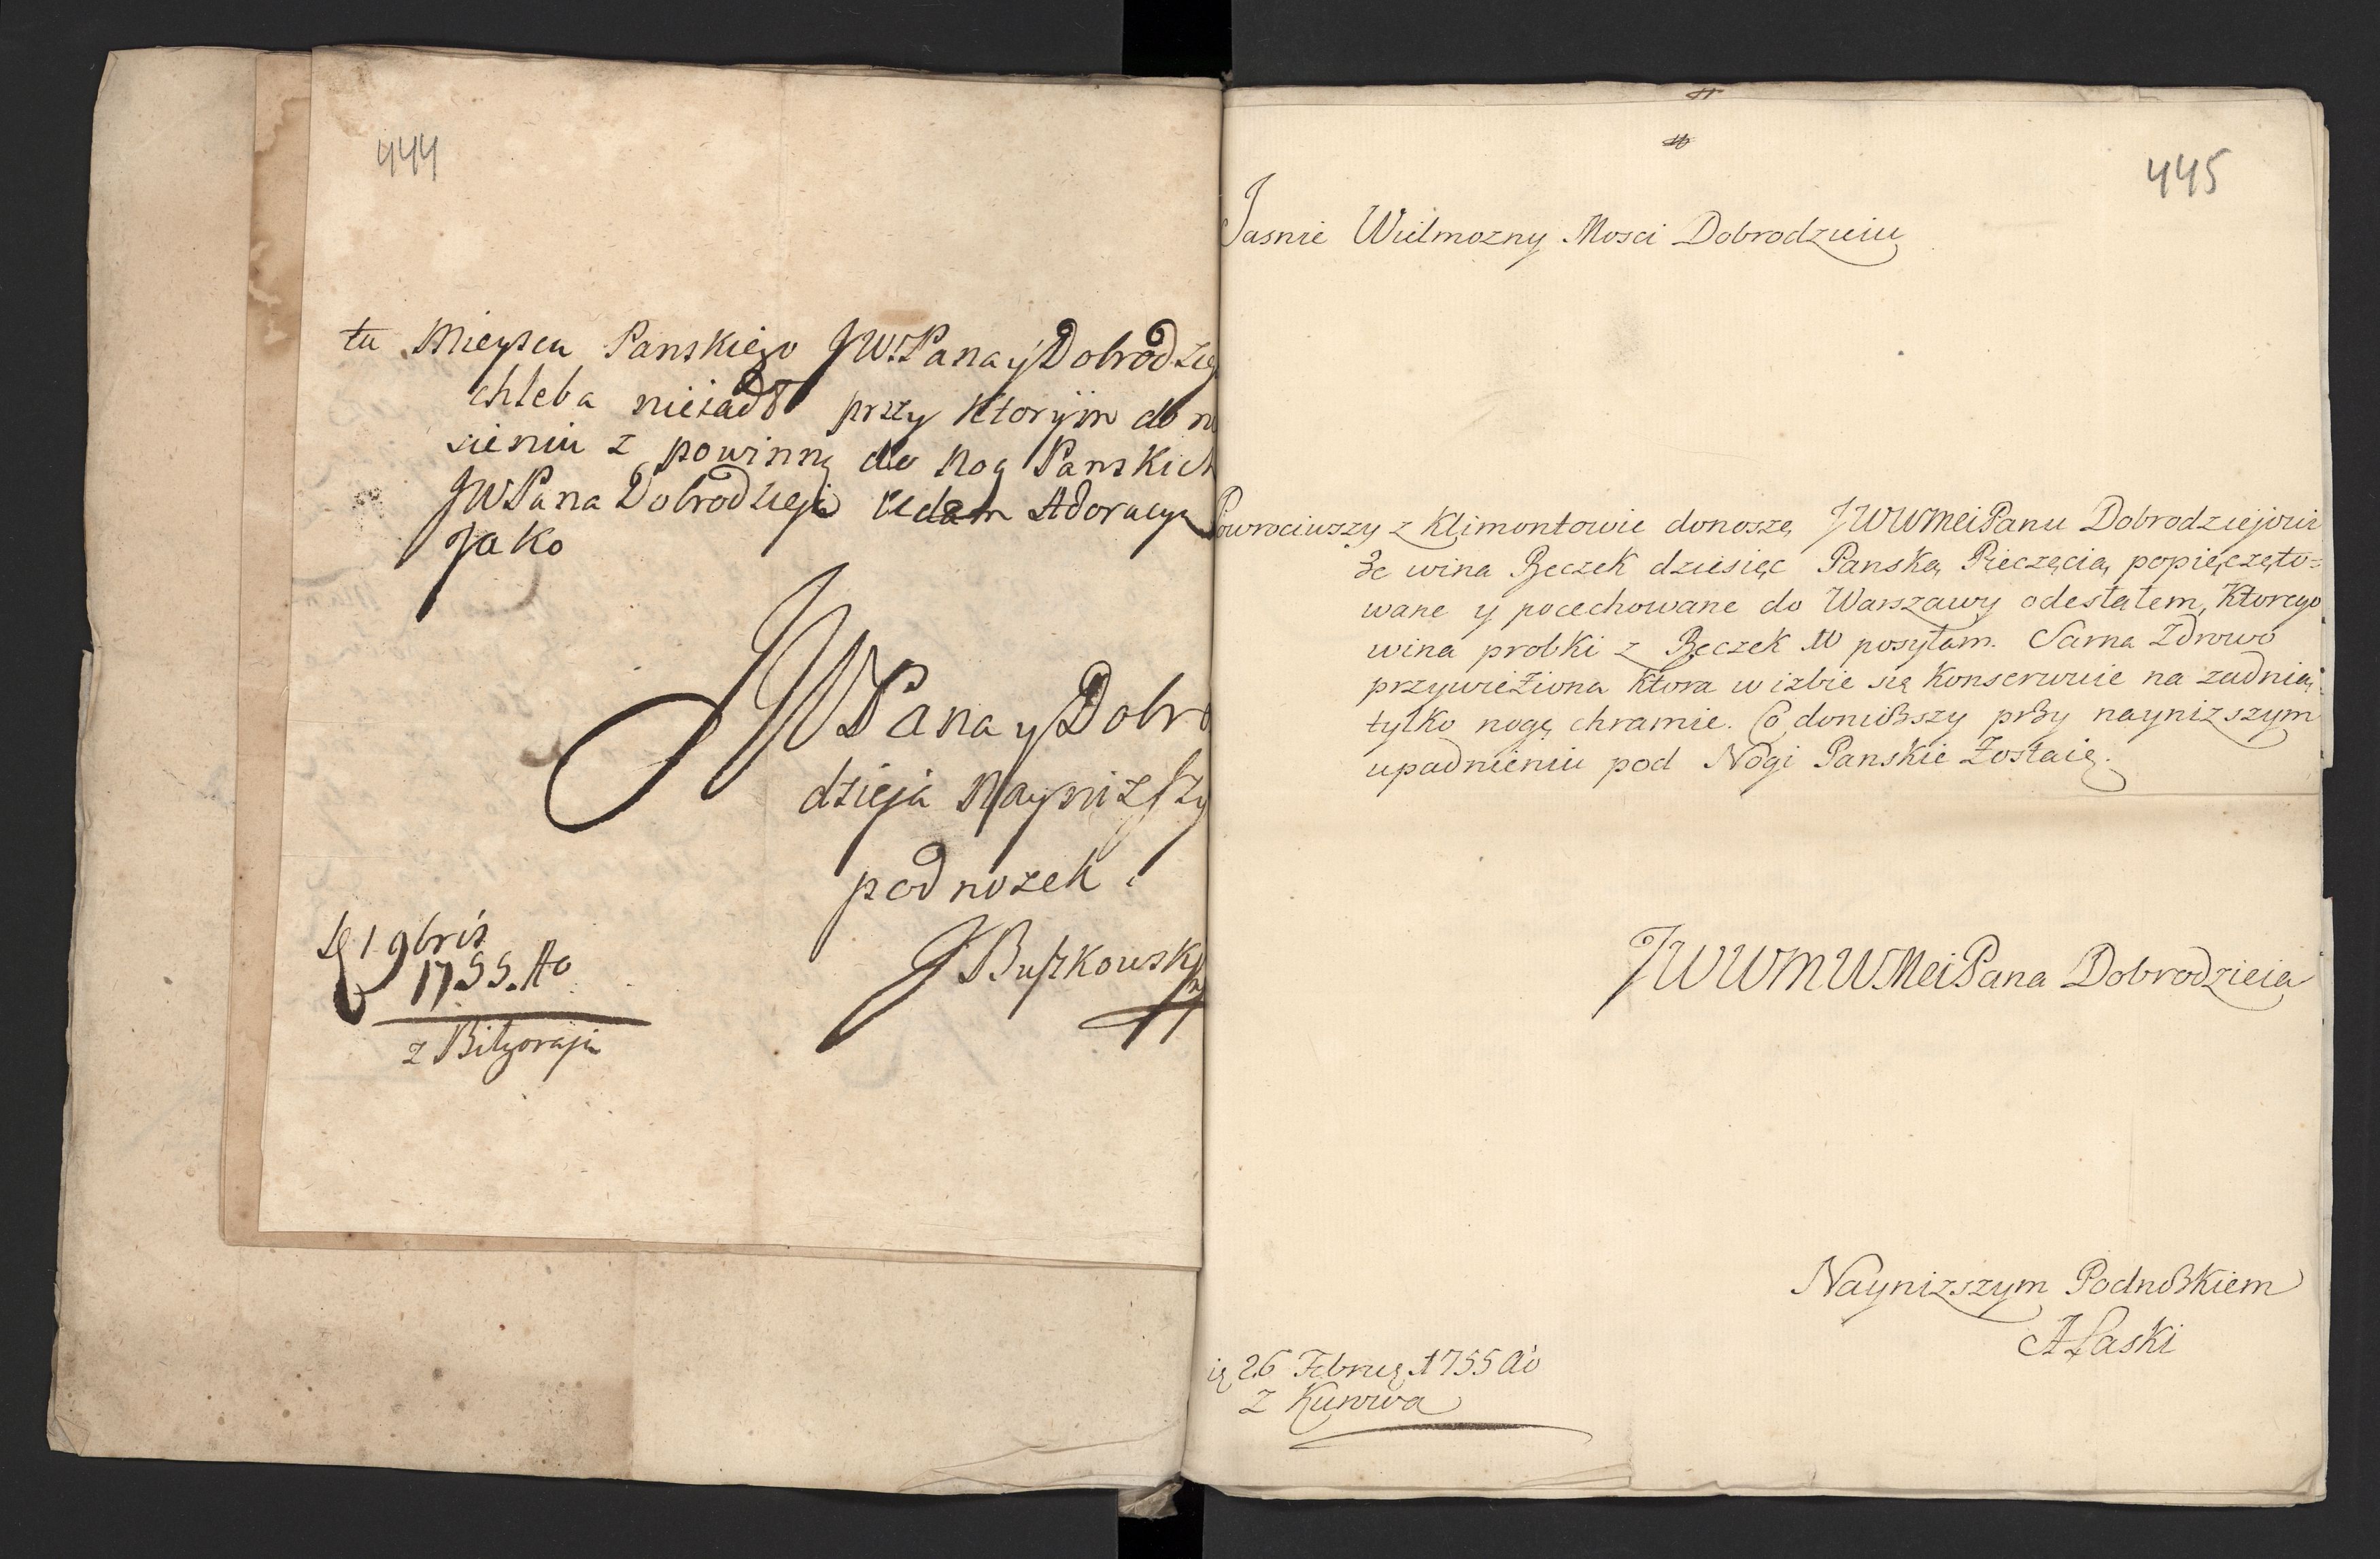 444
tu Mieyscu Panskiego JWPana y Dobrodzie
chleba nieiadł przy Ktorÿm don
sieniu z powinną do Nog Panskich
JWPana Dobrodzieja Adoracyą
Jako
JWPana y Dobro
dzieja Nayniższy
podnozek
J Buszkowski
1 9bris
1755. Ao
z Biłgoraja
445
Jasnie Wielmozny Mosci Dobrodzieiu
Powrociwszy z Klimontowie donoszę JWWMeiPanu Dobrodziejowi
Że wina Beczek dziesięc Panską Pieczęcią popięczęto=
wane y pocechowane do Warszawy odesłałem, Ktorego
wina probki z Beczek 10 posyłam. Sarna Zdrowo
przywieźiona Ktora w izbie się Konserwuie na zadnią
tylko nogę chramie. Co doniosszy przy naynizszym
upadnieniu pod Nogi Panskie Zostaię.
JWWMWMeiPana Dobrodzieia
Naynizszym Podnoskiem
ALaski
26 Februą 1755 Ao
z Kurowa